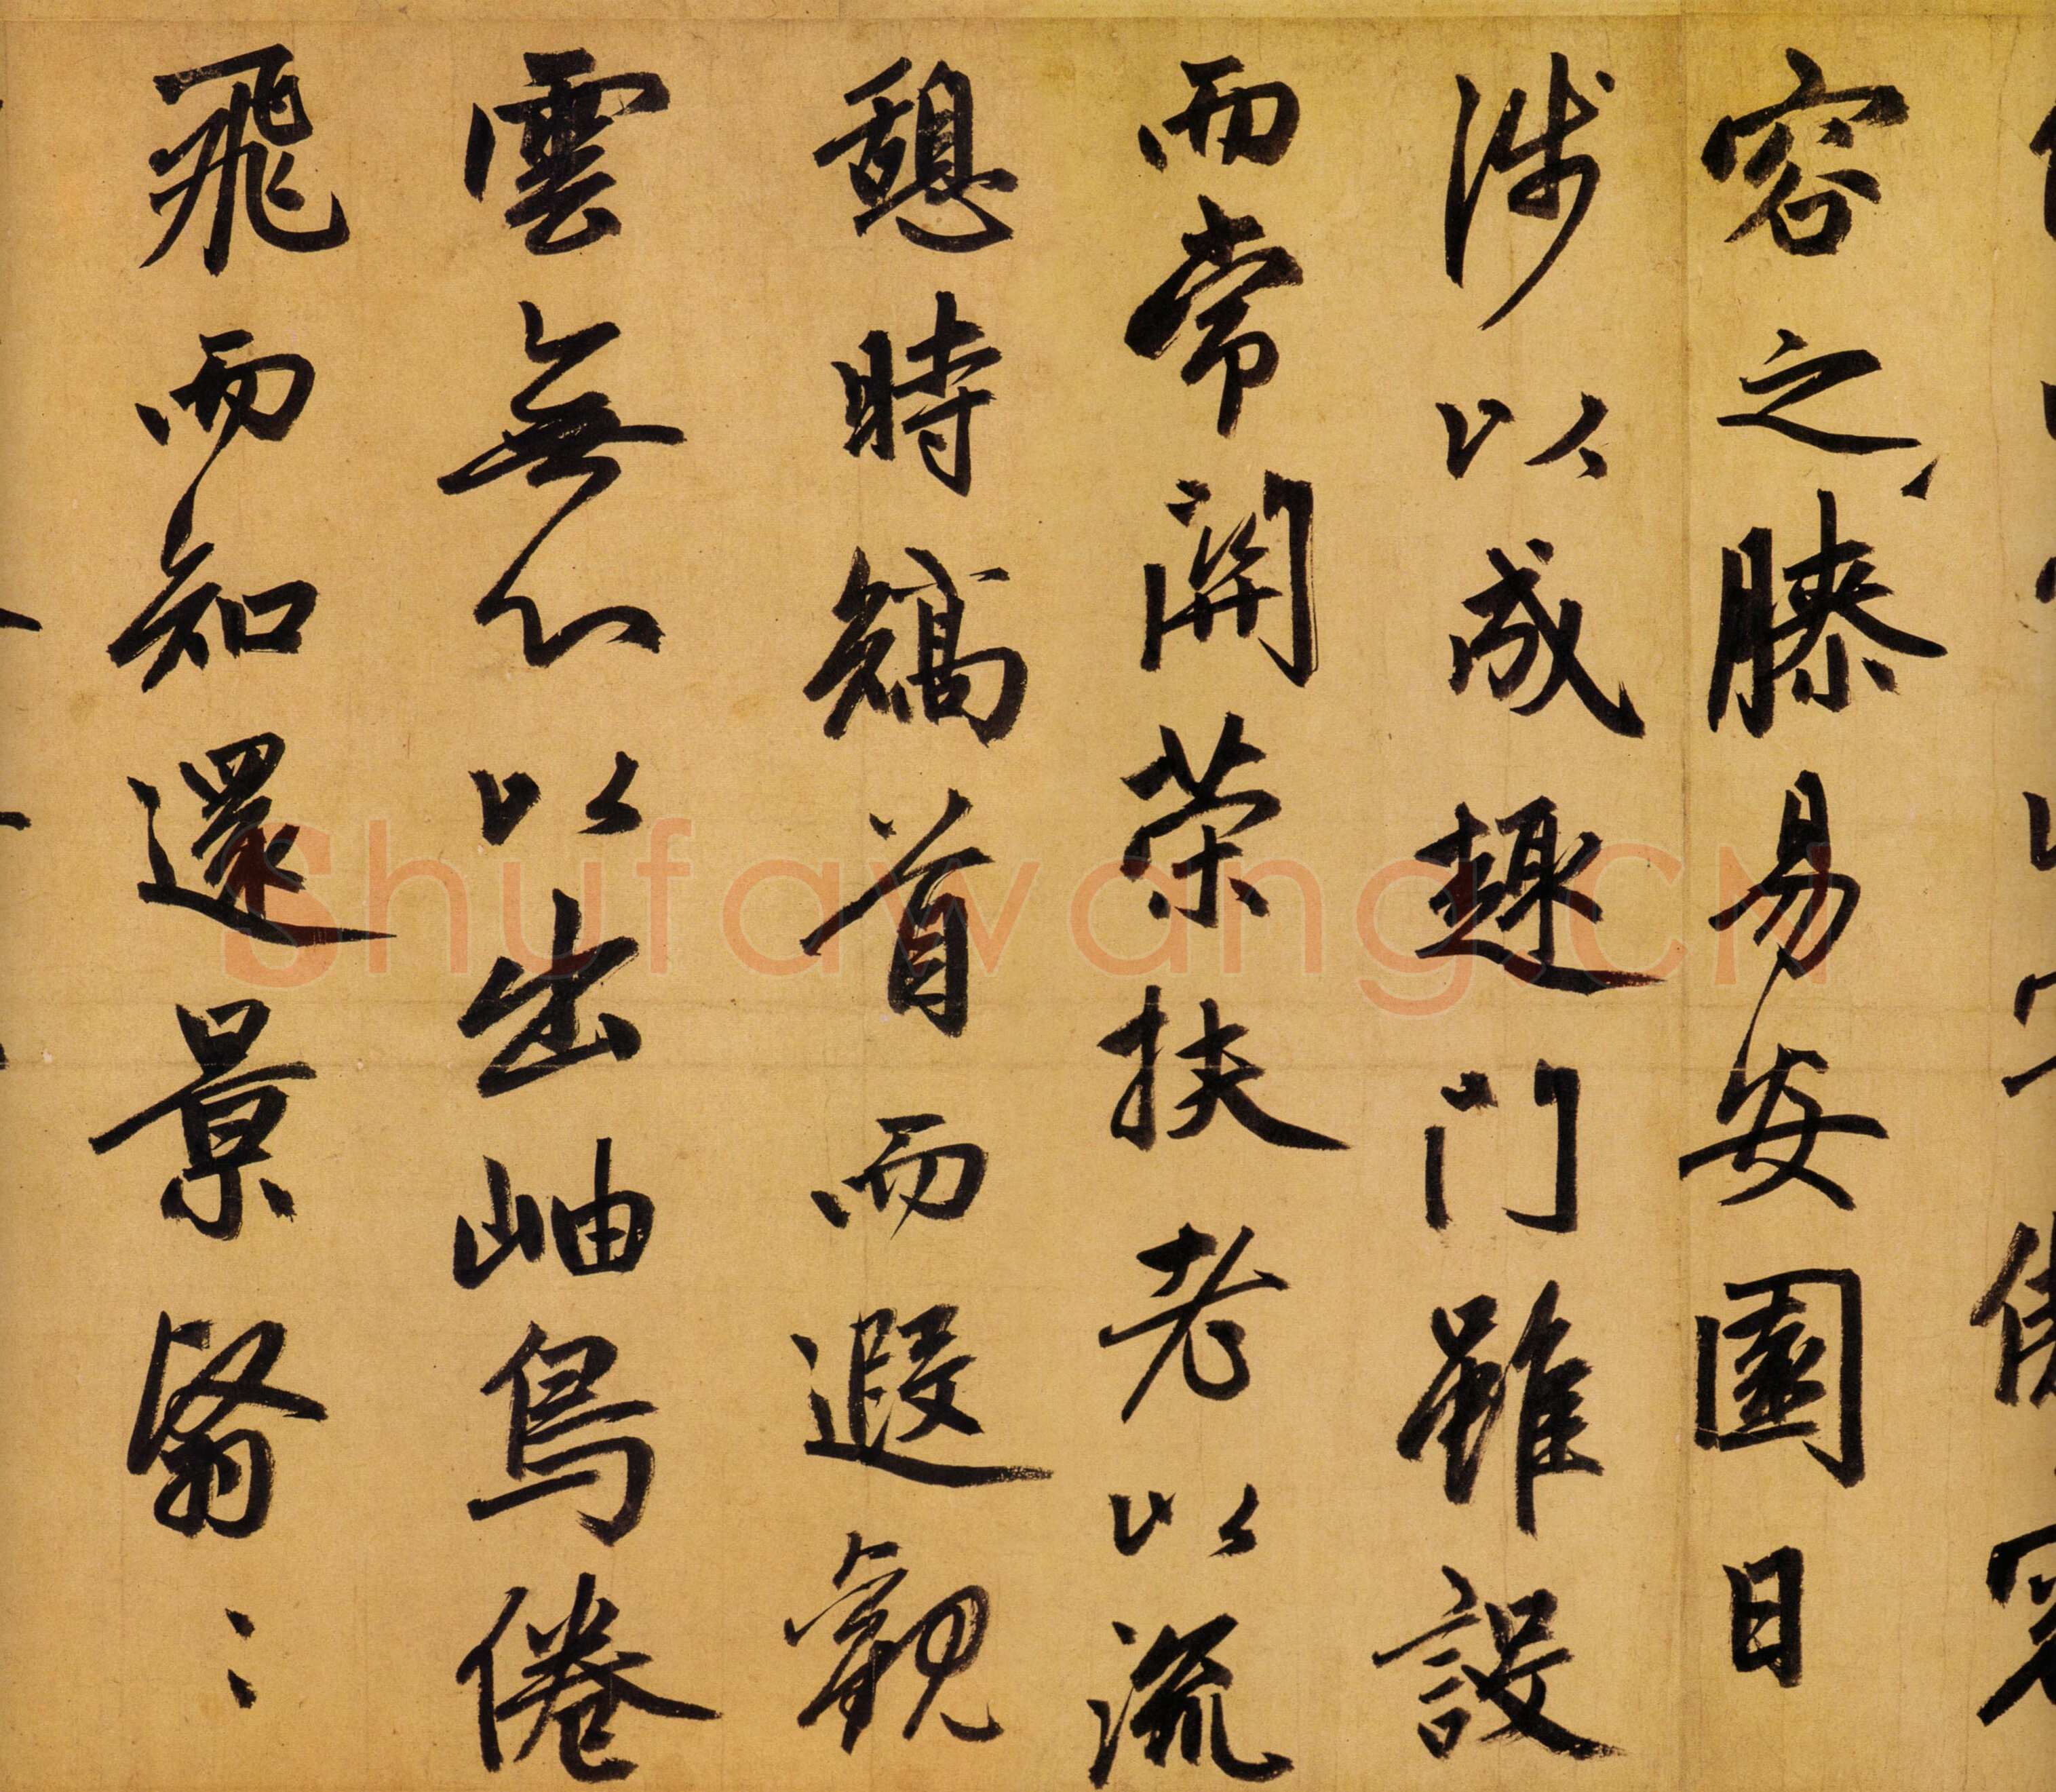 容之膝易安園日
涉以成趣門雖設
而常開荣扶老以流
憩時矯首而遐觀
雲無心以出岫鳥倦
飛而知還景翳〻
Shufawang.CN